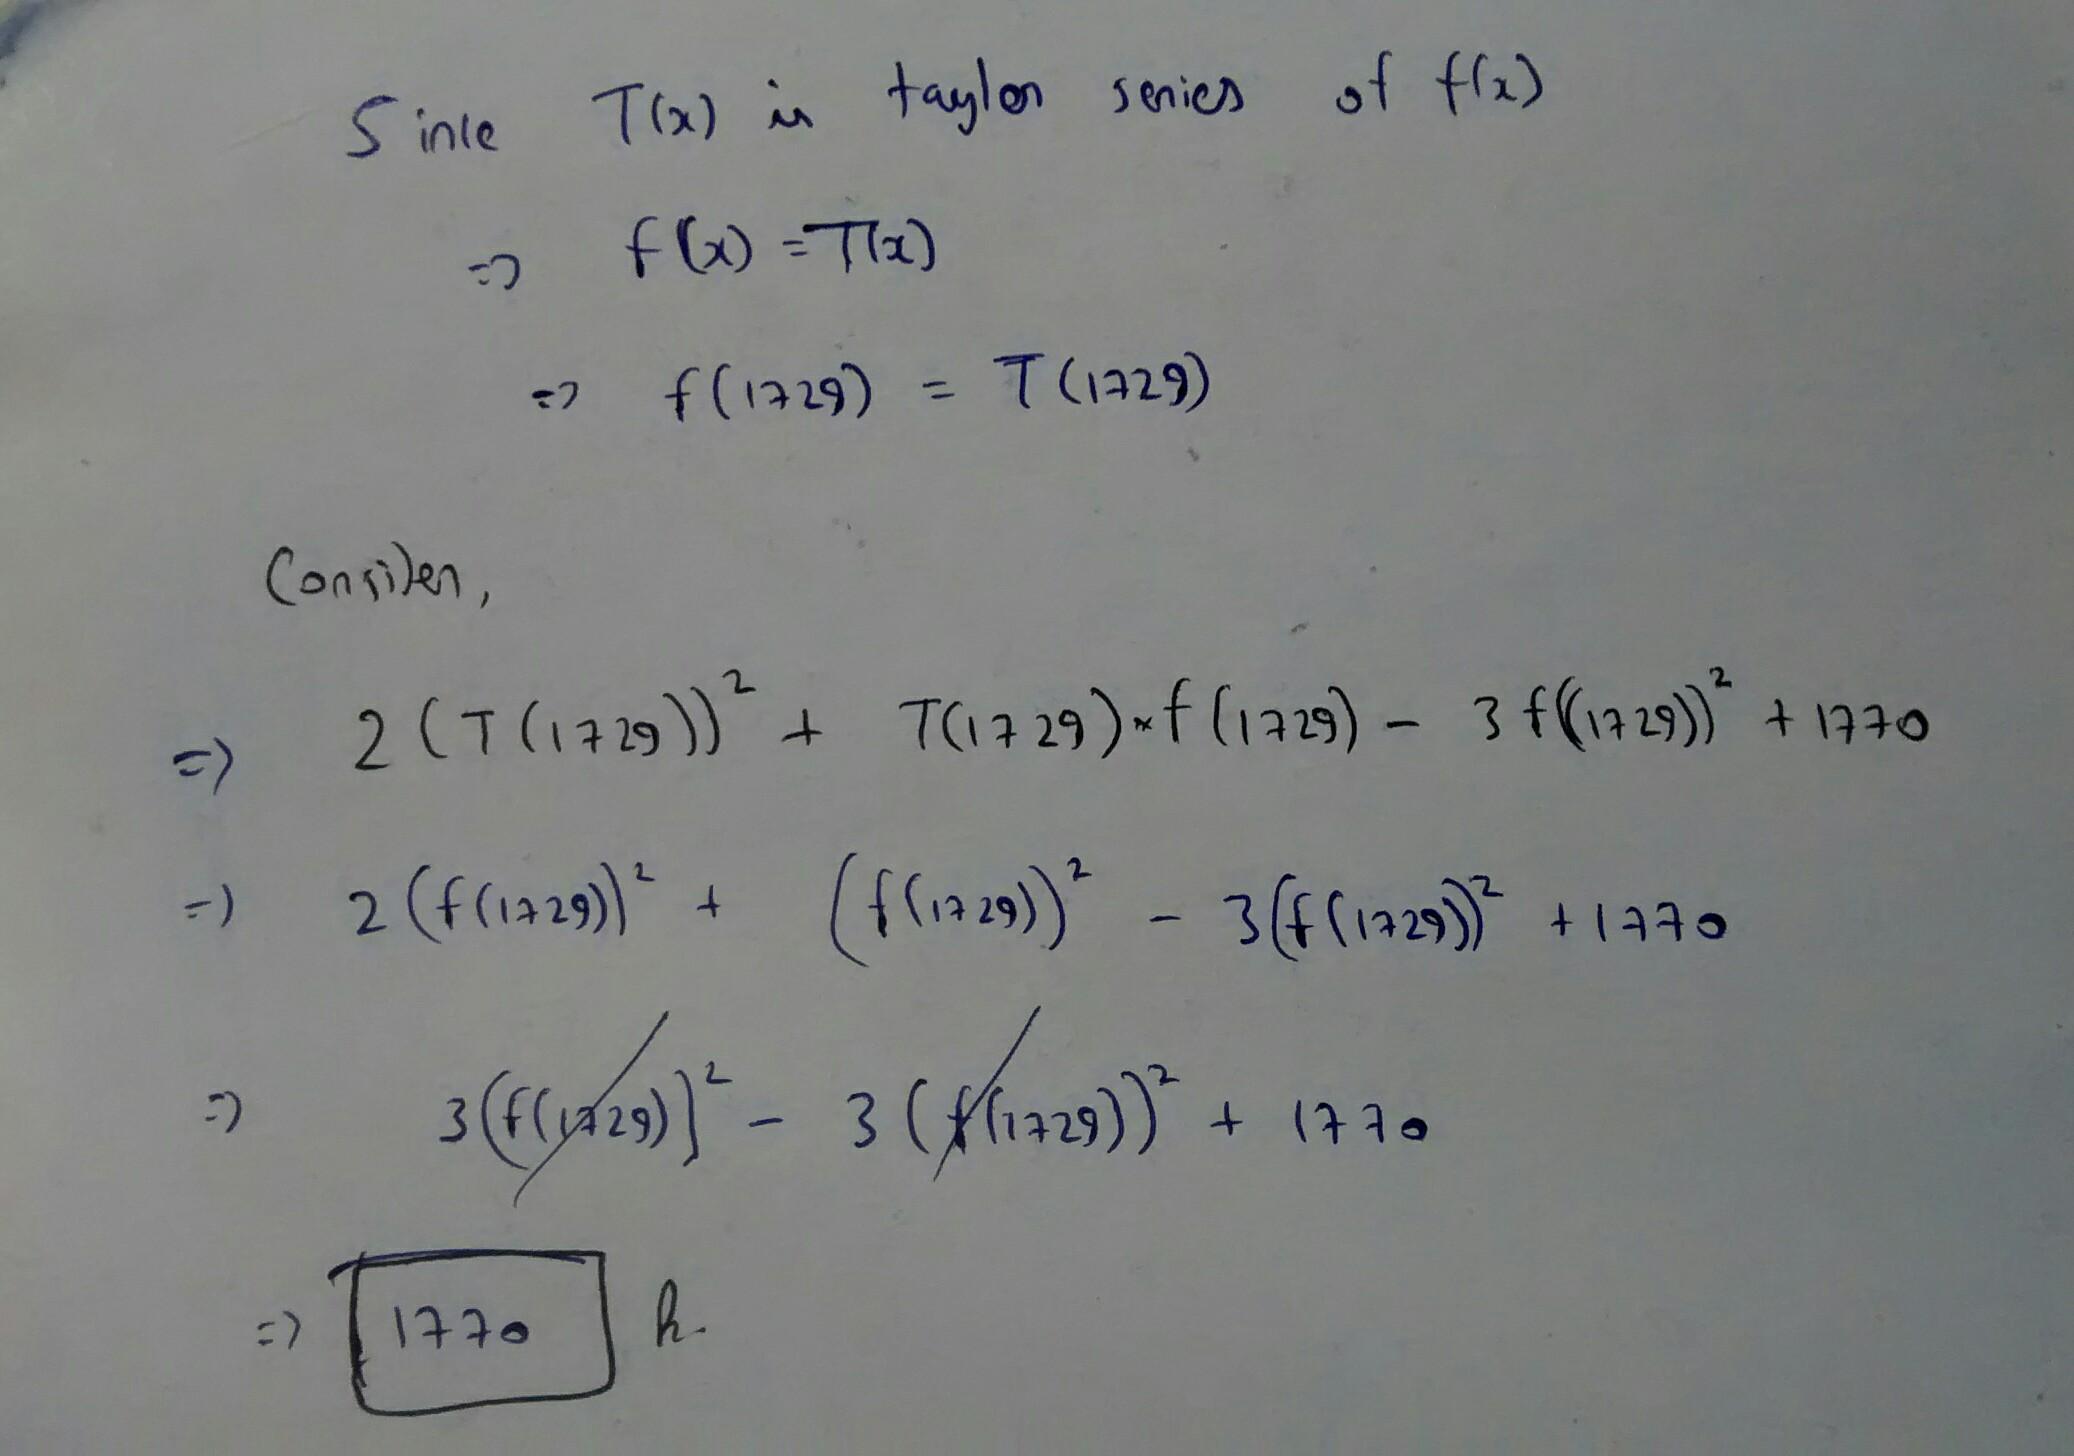 Since T(x) is taylor series of f(x)
=> f(x) = T(x)
=> f(1729) = T(1729)
Consider,
=> 2(T(1729))² + T(1729)×f(1729) - 3f((1729))² + 1770
=> 2(f(1729))² + (f(1729))² - 3(f(1729))² + 1770
=> 3(f(1729))² - 3(f(1729))² + 1770
=> 1770